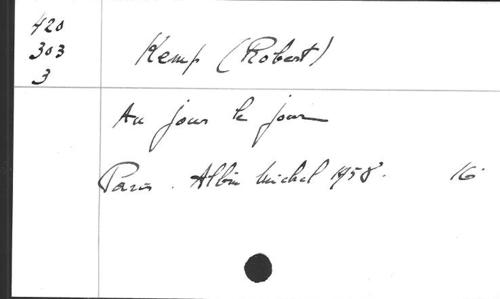 420
303
3
Kemp (Robert)
Au jour le jour
Paris. Albin Michel 1958. 16